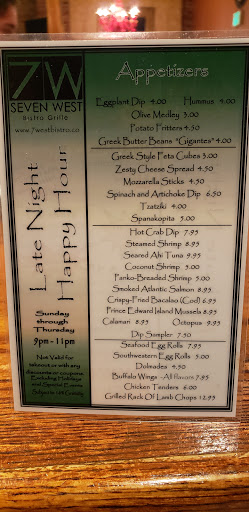 7W
SEVEN WEST
Bistro Grille
www.7westbistro.co
Late Night
Happy Hour
Sunday
through
Thursday
9pm - 11pm
Not Valid for
takeout or with any
discounts or coupons
Excluding Holidays
and Special Events
Appetizers
Eggplant Dip 4.00 Hummus 4.00
Olive Medley 3.00
Potato Fritters 4.50
Greek Butter Beans "Gigantes" 4.00
Greek Style Feta Cubes 3.00
Zesty Cheese Spread 4.50
Mozzarella Sticks 4.50
Spinach and Artichoke Dip 6.50
Tzatziki 4.00
Spanakopita 5.00
Hot Crab Dip 7.95
Steamed Shrimp 8.95
Seared Ahi Tuna 9.95
Coconut Shrimp 5.00
Panko-Breaded Shrimp 5.00
Smoked Atlantic Salmon 8.95
Crispy-Fried Bacalao (Cod) 6.95
Prince Edward Island Mussels 8.95
Calamari 8.95 Octopus 9.95
Dip Sampler 7.50
Seafood Egg Rolls 7.95
Southwestern Egg Rolls 5.00
Dolmades 4.50
Buffalo Wings ~All flavors 7.95
Chicken Tenders 6.00
Grilled Rack Of Lamb Chops 12.95